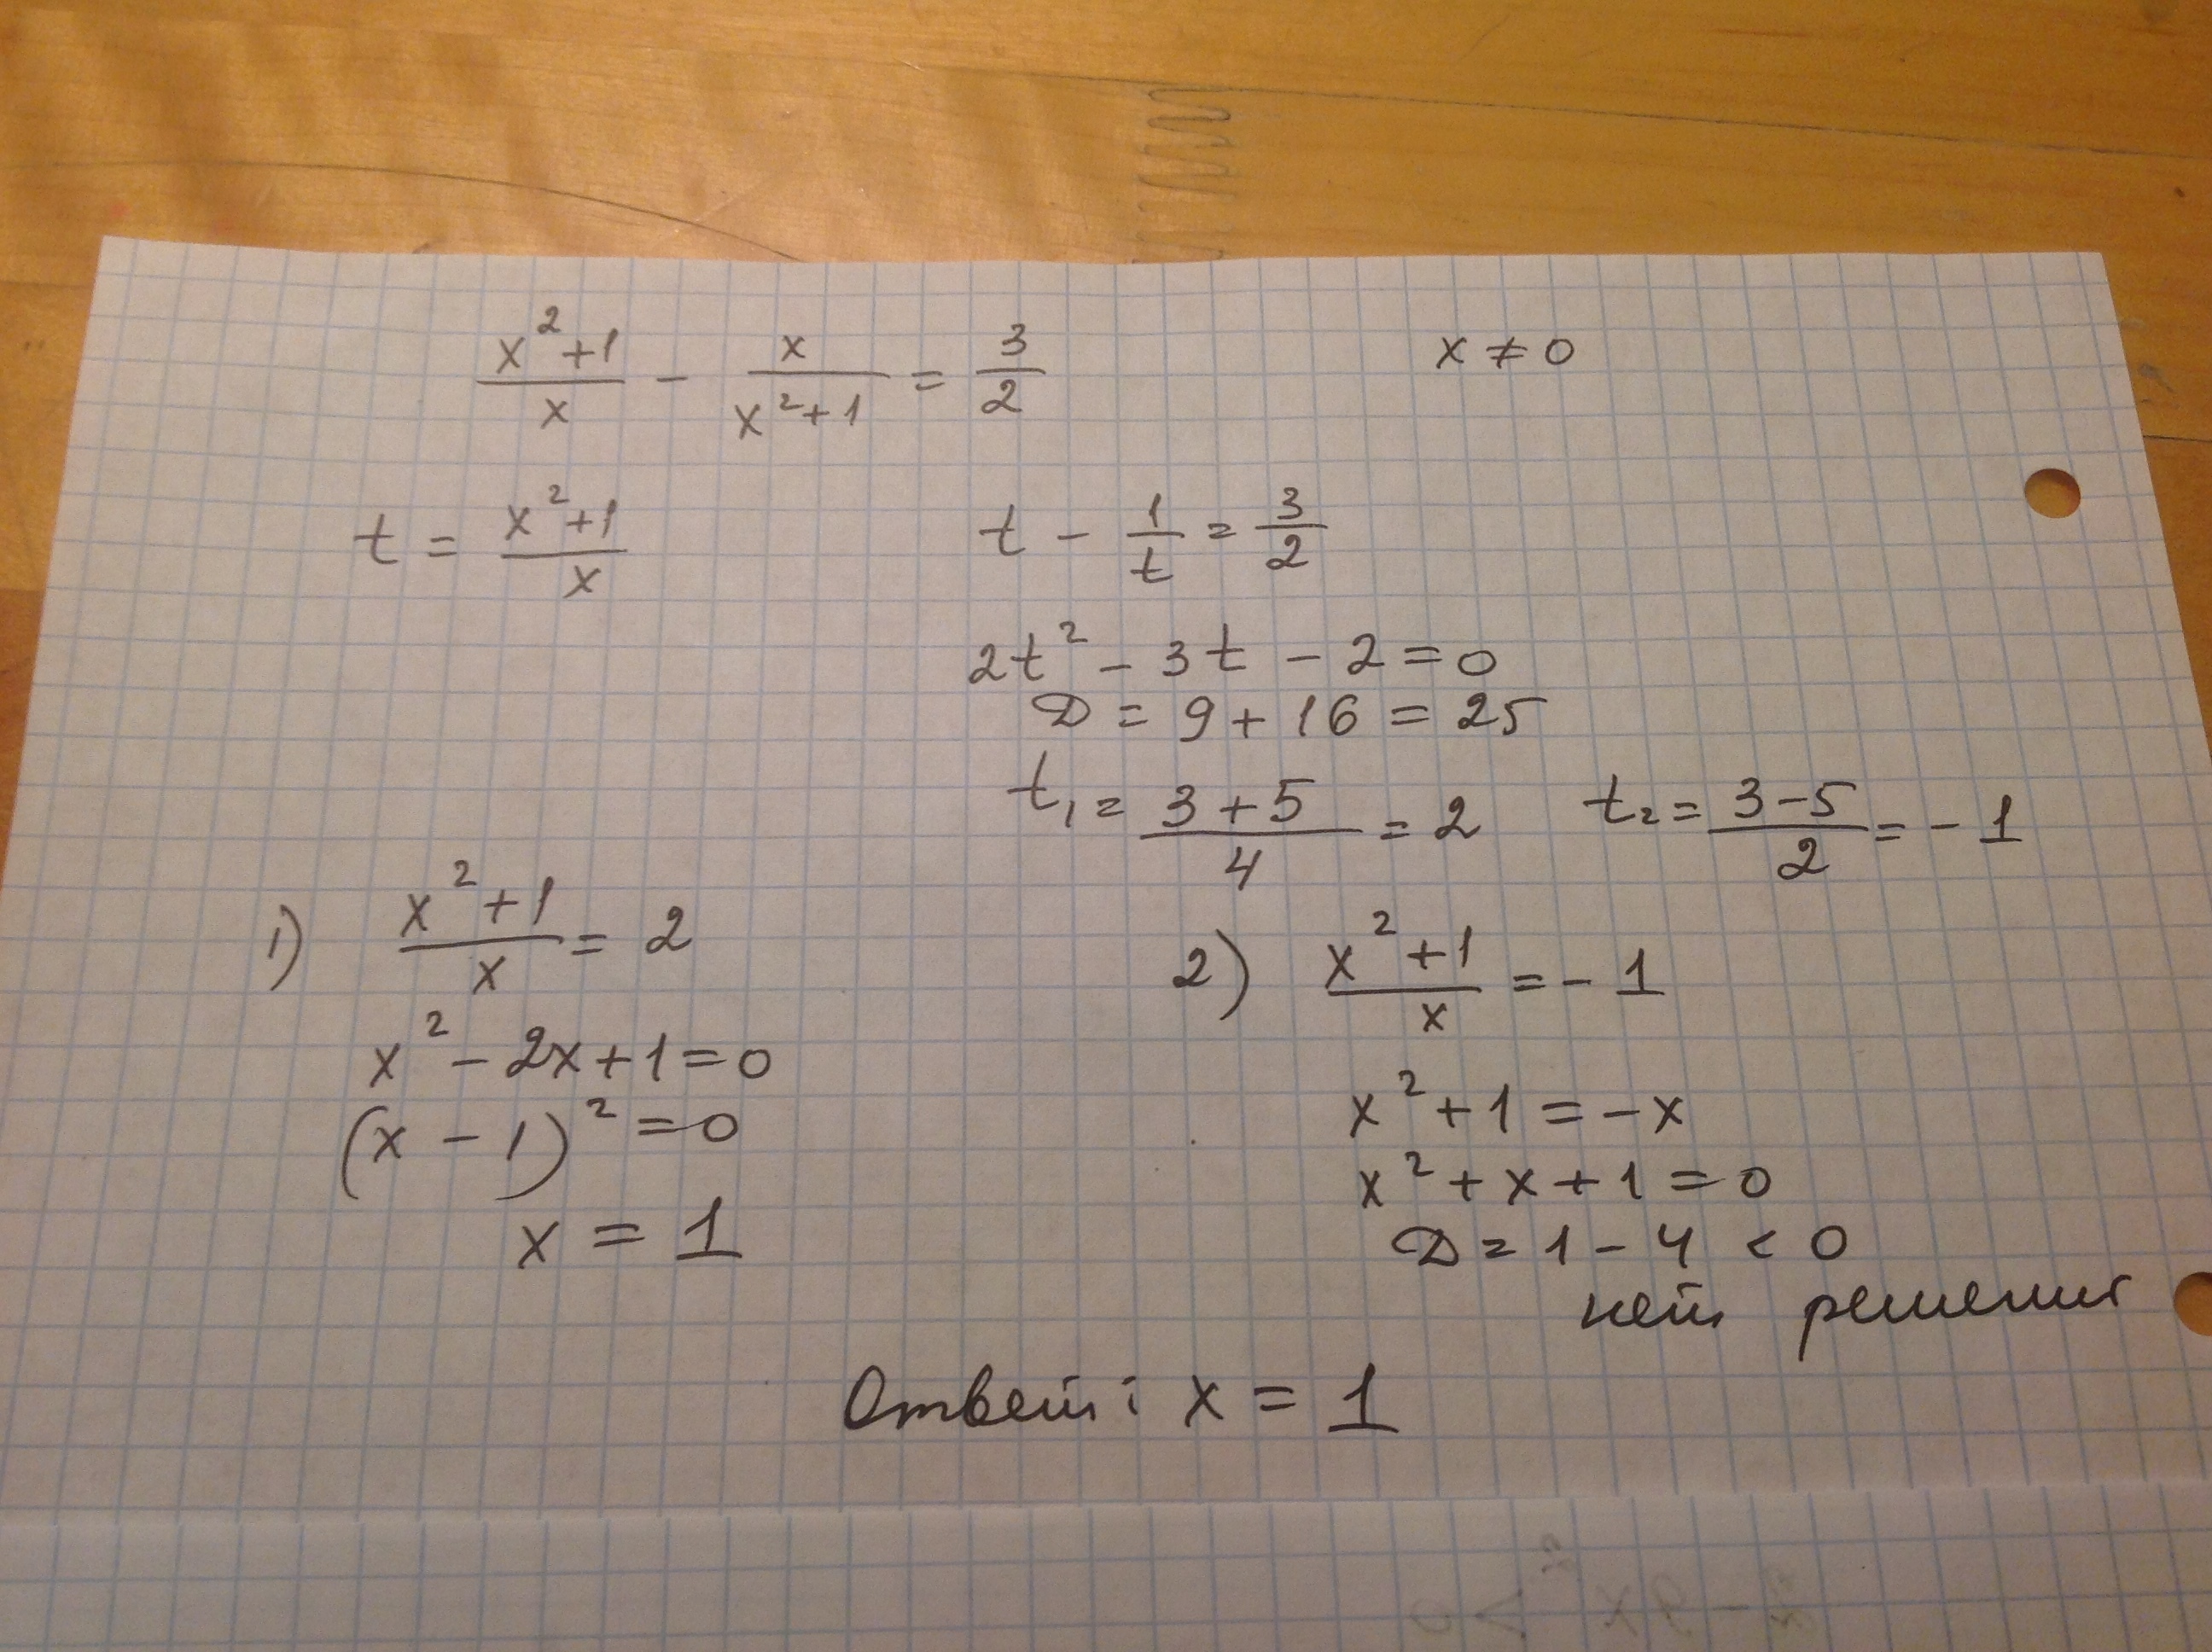 (x²+1)/x − x/(x²+1) = 3/2    x ≠ 0
t = (x²+1)/x    t − 1/t = 3/2
2t² − 3t − 2 = 0
D = 9 + 16 = 25
t₁ = (3+5)/4 = 2    t₂ = (3−5)/2 = −1
1) (x²+1)/x = 2
x² − 2x + 1 = 0
(x − 1)² = 0
x = 1
2) (x²+1)/x = −1
x² + 1 = −x
x² + x + 1 = 0
D = 1 − 4 < 0
нет решения
Ответ: x = 1